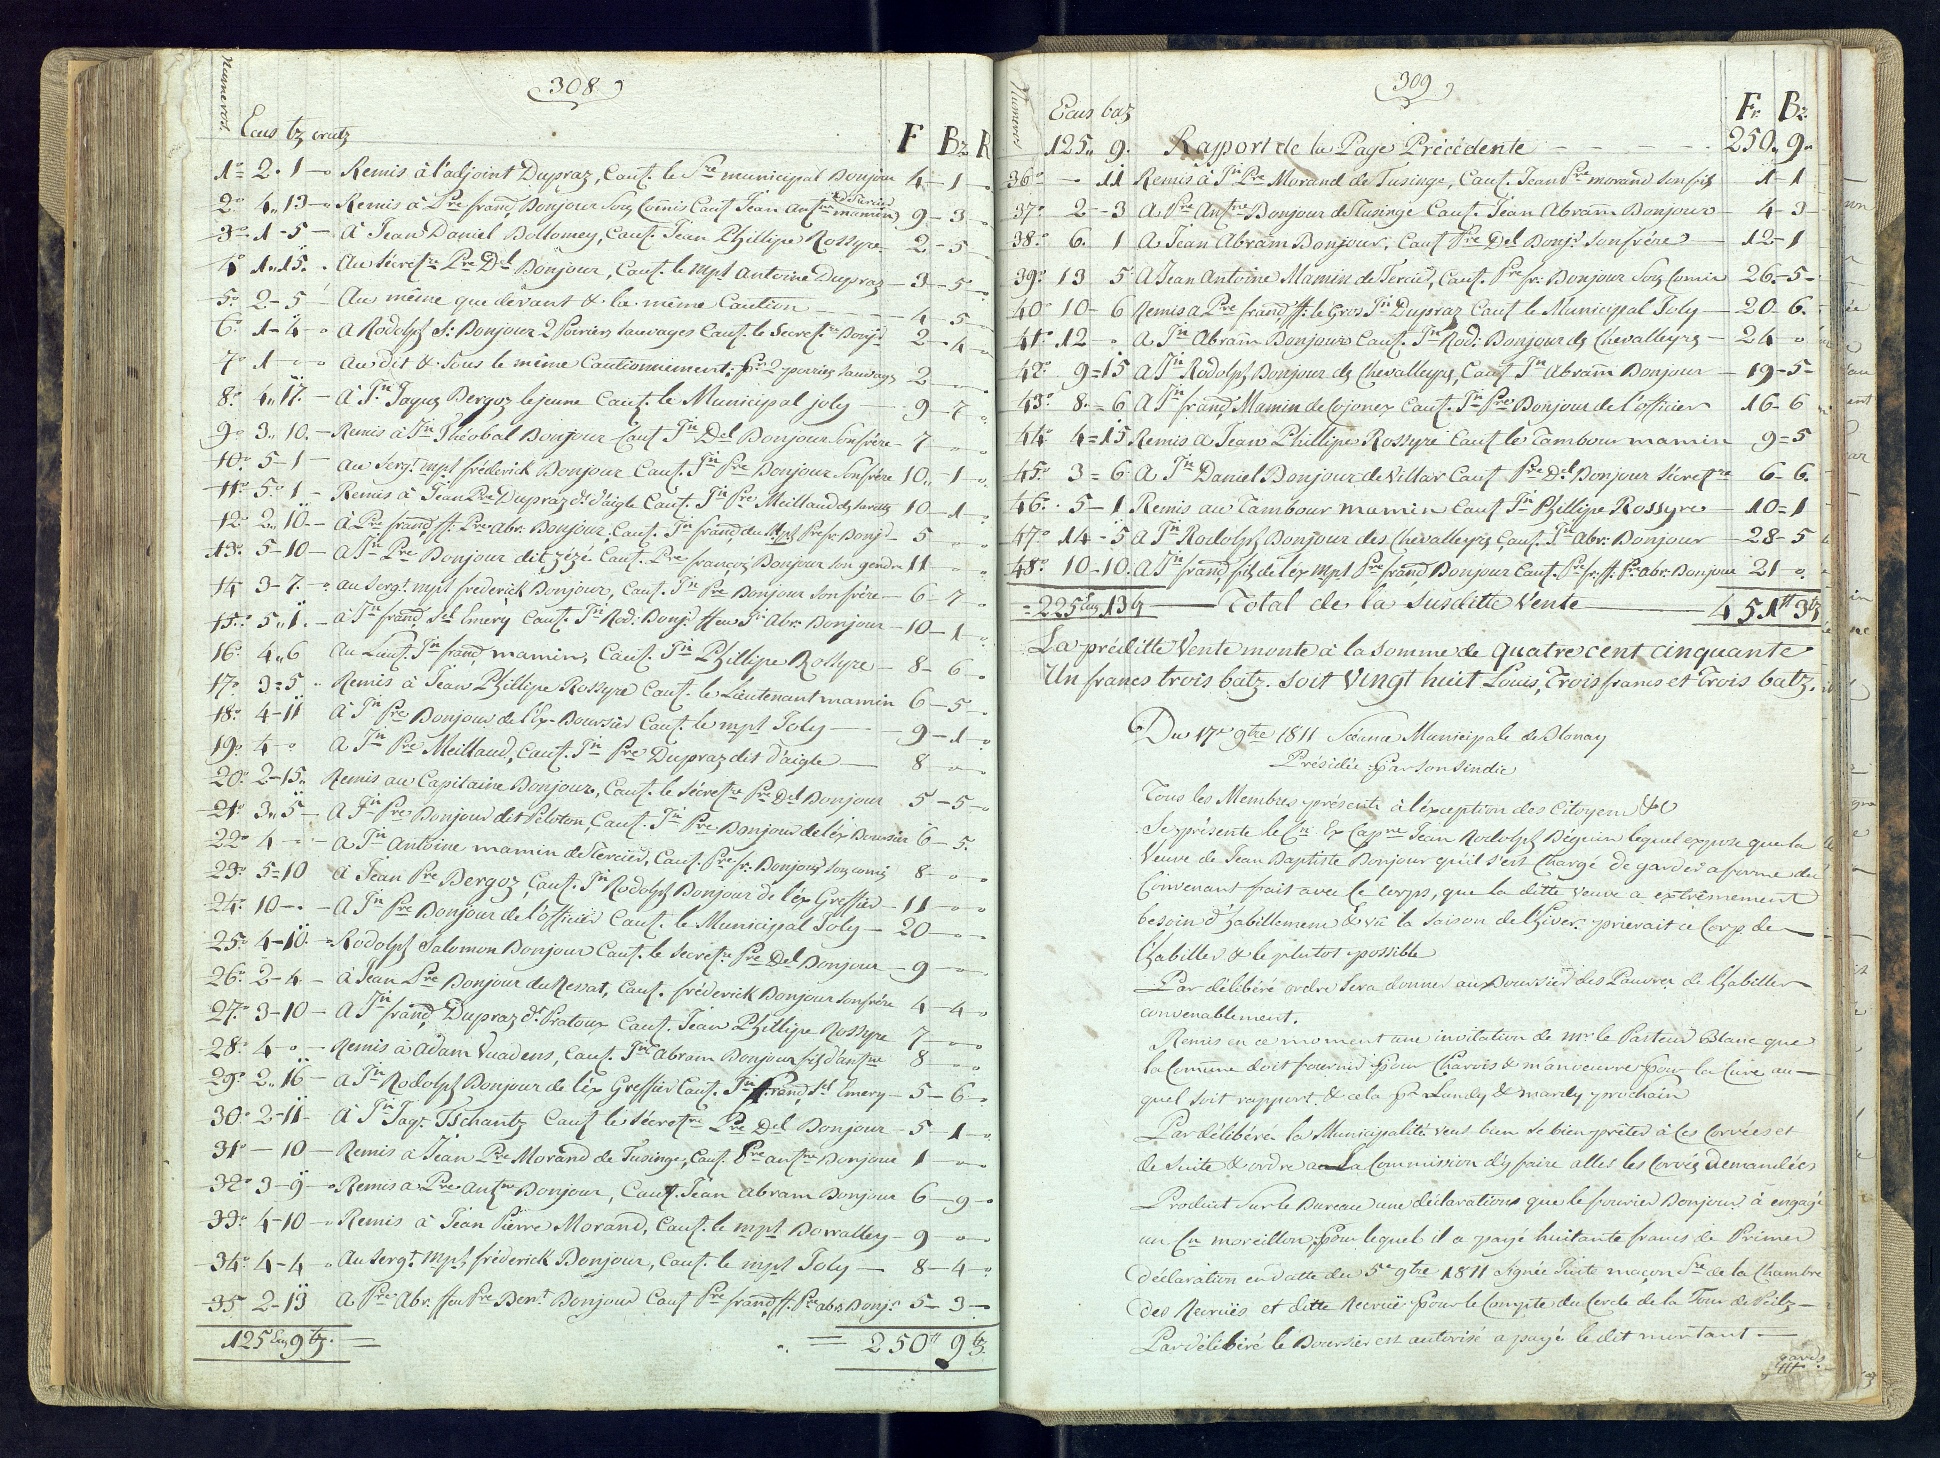 308
Numeros.
Ecus bz crutz F Bz R
1º 2.1 - Remis à l'adjoint Dupraz, Caut. le Sre municipal Bonjour 4 - 1 -
2º 4..13 - Remis à Pre frans Bonjour Sous Comis Caut Jean Antne mamin de Tercier 9 - 3 -
3º 1 - 5 - A Jean Daniel Dollomey, Caut. Jean Phillipe Rossyre 2 - 5
4º 1..15. Au Sécretre Pre Del Bonjour, Caut. le mpl Antoine Dupraz - 3 - 5 -
5º 2 - 5 Au même que devant & la même Caution 4 5
6º 1 - 4 - A Rodolph Sn: Bonjour 2 Poiriers Sauvages Caut. le Secretre Bonjr 2 - 4
7º 1 - o Au dit & sous le même Cautionnement: pr 2 poiriers sauvages 2
8º 4..17. A Jn Jaques Bergoz le jeune Caut. le Municipal joly 9 - 7
9º 3. 10. - Remis à Jn Théobal Bonjour Caut Jn Del Bonjour Son frère - 7
10º 5 - 1 - Au Sergt mpl fréderick Bonjour Caut. Jn Pre Bonjour Son frère 10.. - 1
11º 5º 1 - Remis à Jean Pre Dupraz dt d'aigle Caut. Jn Pre Meilland 10 - 1
12º 2..10. - à Pre frand ff. Pre Abr. Bonjour, Caut. Jn frand du Mpl Pre fr: Bonjr - 5
13º 5 - 10 - A Jn Pre Bonjour dit zizé Caut. Pre françoz Bonjour son gendre 11
14 3 - 7. - au Sergt. mpl frederick Bonjour, Caut. Jn Pre Bonjour Son frère - 6 - 7
15º 5..1. - à Jn frand Sel Emery Caut. Jn Rod: Bonjr ffeu Jn Abr. Bonjour - 10 - 1
16º 4..6 Au Lieut. Jn frand mamin, Caut. Jn Phillipe Rossyre - 8 - 6
17º 3 = 5 Remis à Jean Phillipe Rossyre Caut. le Lieutenant mamin 6 - 5
18º 4 - 11 à Jn Pre Bonjour de l'Ex-Boursier Caut. le mpl Joly 9 - 1
19º 4 - o A Jn Pre Meilland, Caut. Jn Pre Dupraz dit d'aigle 8
20º 2 - 15. Remis au Capitaine Bonjour, Caut. le Sécretre Pre Del Bonjour 5 - 5
21º 3..5 - A Jn Pre Bonjour dit Peloton, Caut. Jn Pre Bonjour de l'éx Boursier 6 - 5.
22º 4 - A Jn Antoine mamin de Tercier, Caut. Pre fr: Bonjour Sous comis 8 -
23º 5 = 10 à Jean Pre Bergoz, Caut. Jn Rodolph Bonjour de l'éx Greffier - 11
24º 10 - - A Jn Pre Bonjour de l'officier Caut. le Municipal Joly - 20
25º 4 - 10. - Rodolph Salomon Bonjour Caut. le Sécretre Pre Del Bonjour - 9
26º 2 - 4 - à Jean Pre Bonjour du Ressat, Caut. fréderick Bonjour Son frère 4 - 4
27º 3 - 10 - A Jn frand Dupraz de Pratoux Caut. Jean Phillipe Rossyre 7
28º 4 - o - Remis à Adam Vuadens, Caut. Jn Abram Bonjour fils d'antne 8
29º 2..16 - A Jn Rodolph Bonjour de l'éx Greffier Caut. Jn frand Sel Emery - 5 - 6
30º 2 - 11 - à Jn Jaqs Tschantz Caut le Sécretre Pre Del Bonjour - 5 - 1
31º - 10 - Remis à Jean Pre Morand de Tusinge, Caut. Pre antne Bonjour 1
32º 3 - 9 - Remis à Pre Antne Bonjour, Caut. Jean Abram Bonjour 6 - 9
33º 4 - 10 - Remis à Jean Pierre Morand, Caut. le mpl Dovalley - 9
34º 4 - 4 Au Sergt mpl fréderick Bonjour, Caut. le mpl Joly - 8 - 4
35 2 - 13 A Pre Abr. ffeu Pre Bent Bonjour Caut Pre frand ff. Pre abr. Bonjr 5 - 3
125 Ecus 9 bz. = = 250 ff 9 bz
309
Numeros
Ecus batz Fr. Bz.
125.. 9. Rapport de la Page Précédente 250.. 9..
36º - 11 Remis à Jn Pre Morand de Tusinge, Caut. Jean Pre morand son fils 1 - 1
37º 2 - 3 A Pre Antne Bonjour de Tusinge Caut. Jean Abram Bonjour 4 - 3
38º 6. 1 A Jean Abram Bonjour, Caut Pre Del Bonjr Son frère 12 - 1
39º 13 5 A Jean Antoine Mamin de Tercier, Caut. Pre fr: Bonjour Sous Comis 26 - 5 -
40º 10 - 6 Remis a Pre frand ff: le Gros Jn Dupraz Caut le Municipal Joly - 20 - 6.
41º 12 - o A Jn Abram Bonjour Caut. Jn Rod: Bonjour ds Chevalleyres - 24 o
42º 9 = 15 A Jn Rodolph Bonjour ds Chevalleyres, Caut Jn Abram Bonjour - 19 - 5 -
43º 8. = 6 A Jn frand Mamin de Cojonex Caut. Jn Pre Bonjour de l'officier 16 - 6
44º 4 = 15 Remis a Jean Phillipe Rossyre Caut le Tambour mamin 9 = 5
45º 3 = 6 A Jn Daniel Bonjour de Villar Caut Pre Del Bonjour Sécretre 6 - 6.
46º. 5 - 1 Remis au Tambour mamin Caut Jn Phillipe Rossyre 10 = 1
47º 14 - 5 A Jn Rodolph Bonjour des Chevalleyres, Caut. Jn Abr: Bonjour 28 - 5
48º 10 - 10. A Jn frand fils de l'éx mpl Pre frand Bonjour Caut. Pre fr. ff. Pre abr: Bonjour 21 o.
= 225 Ecus 13 bz Total de la susditte Vente 451 ff 3 bz
La préditte Vente monte à la somme de quatre cent cinquante
Un francs trois batz. soit Vingt huit Louis, Trois francs et Trois batz.
Du 17e 9bre 1811 Séance Municipale de Blonay
Présidée par Son Sindic
Tous les Membres présents à l'éxception des Citoyens &c
Se présente le Cn Ex Capne Jean Rodolph Déguin lequel expose que la
Veuve de Jean Baptiste Bonjour qu'il s'est Chargé de garder a forme du
Convenant frait avec le Corps, que la ditte veuve a extrêmement
besoin d'habillement & vu la saison de l'hiver prierait ce Corp de
l'habiller & le plutot possible
Par délibéré ordre sera donner au Boursier des Pauvres de l'habiller
convenablement.
Remis en ce moment une invitation de mr le Pasteur Blanc que
la Comune doit fournir pour Charois & manoeuvre pour la Cure au
quel soit rapport & cela pr Lundy & mardy prochain
Par délibéré la Municipalité veut bien se bien prêter à ces Corvées et
de Suite & ordre a La Commission d'y faire alles les Corvées Demandées
Produit Sur le Bureau une déclaration que le fourier Bonjour à engagé
un Cn moreillon, pour lequel il a payé huitante francs de Primer
déclaration en datte du 5e 9bre 1811 signée Suite maçon Sre de la Chambre
des Recruës et ditte Recruë pour le Compte du Cercle de la Tour de Peilz -
Par délibéré le Boursier est autorisé a payé le dit montant